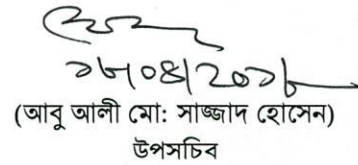 ১৮/০৪/২০১৮
(আবু আলী মো: সাজ্জাদ হোসেন)
উপসচিব